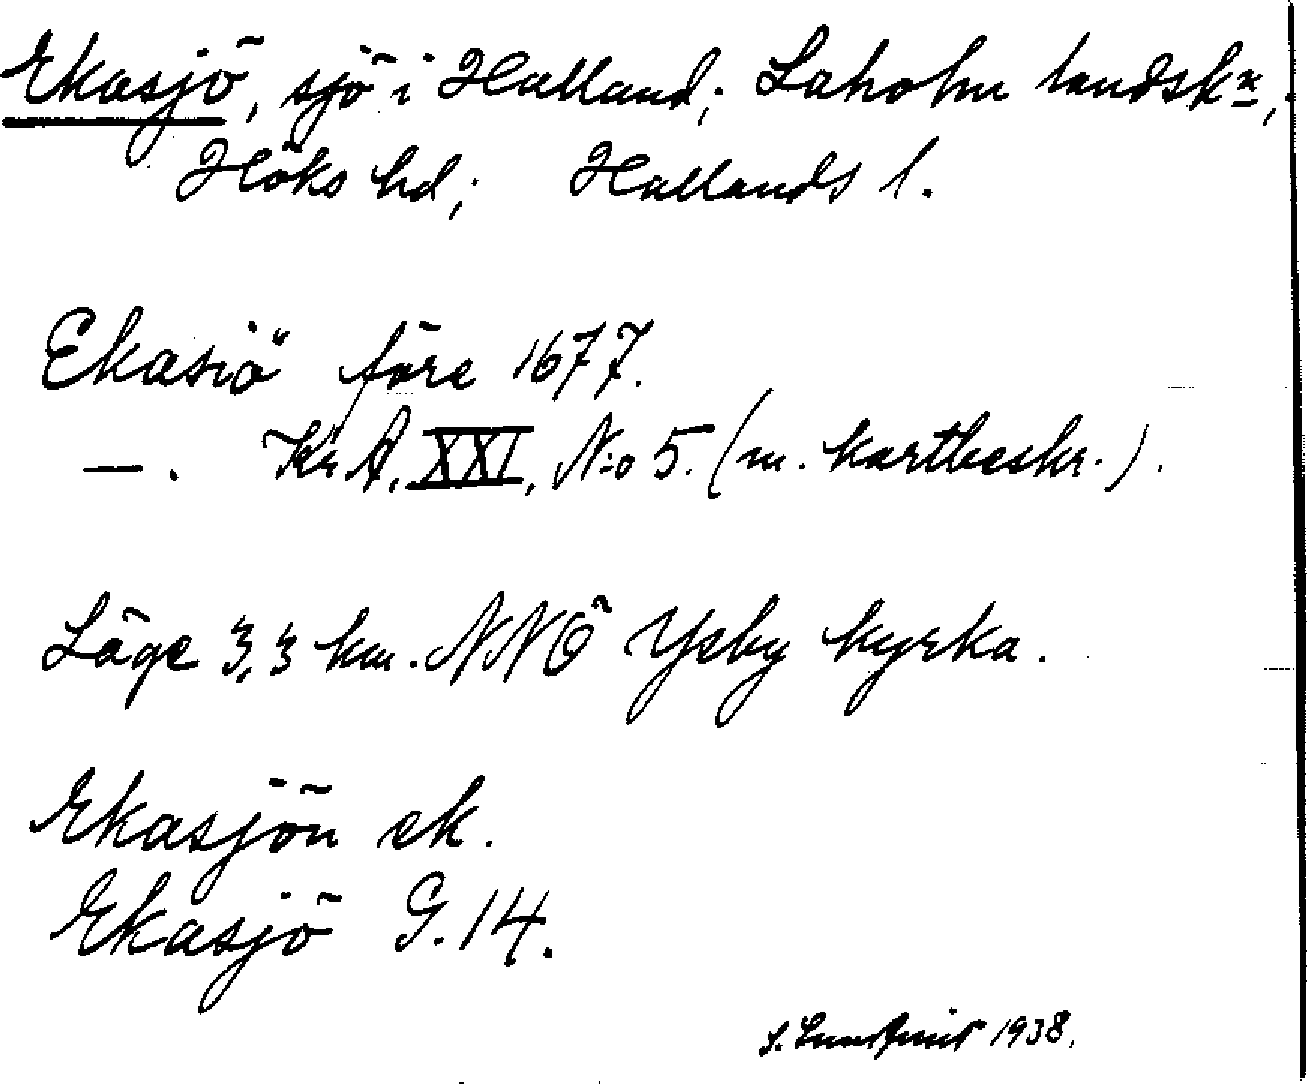 Ekasjö, sjö i Halland; Laholm landskn,
Höks hd; Hallands l.
Ekasiö före 1677.
—. Kr A, XXI, N:o 5. (m. kartbeskr.).
Läge 3,3 km. NNÖ Ysby kyrka.
Ekasjön ek.
Ekasjö G. 14.
S. Lundquist 1938.